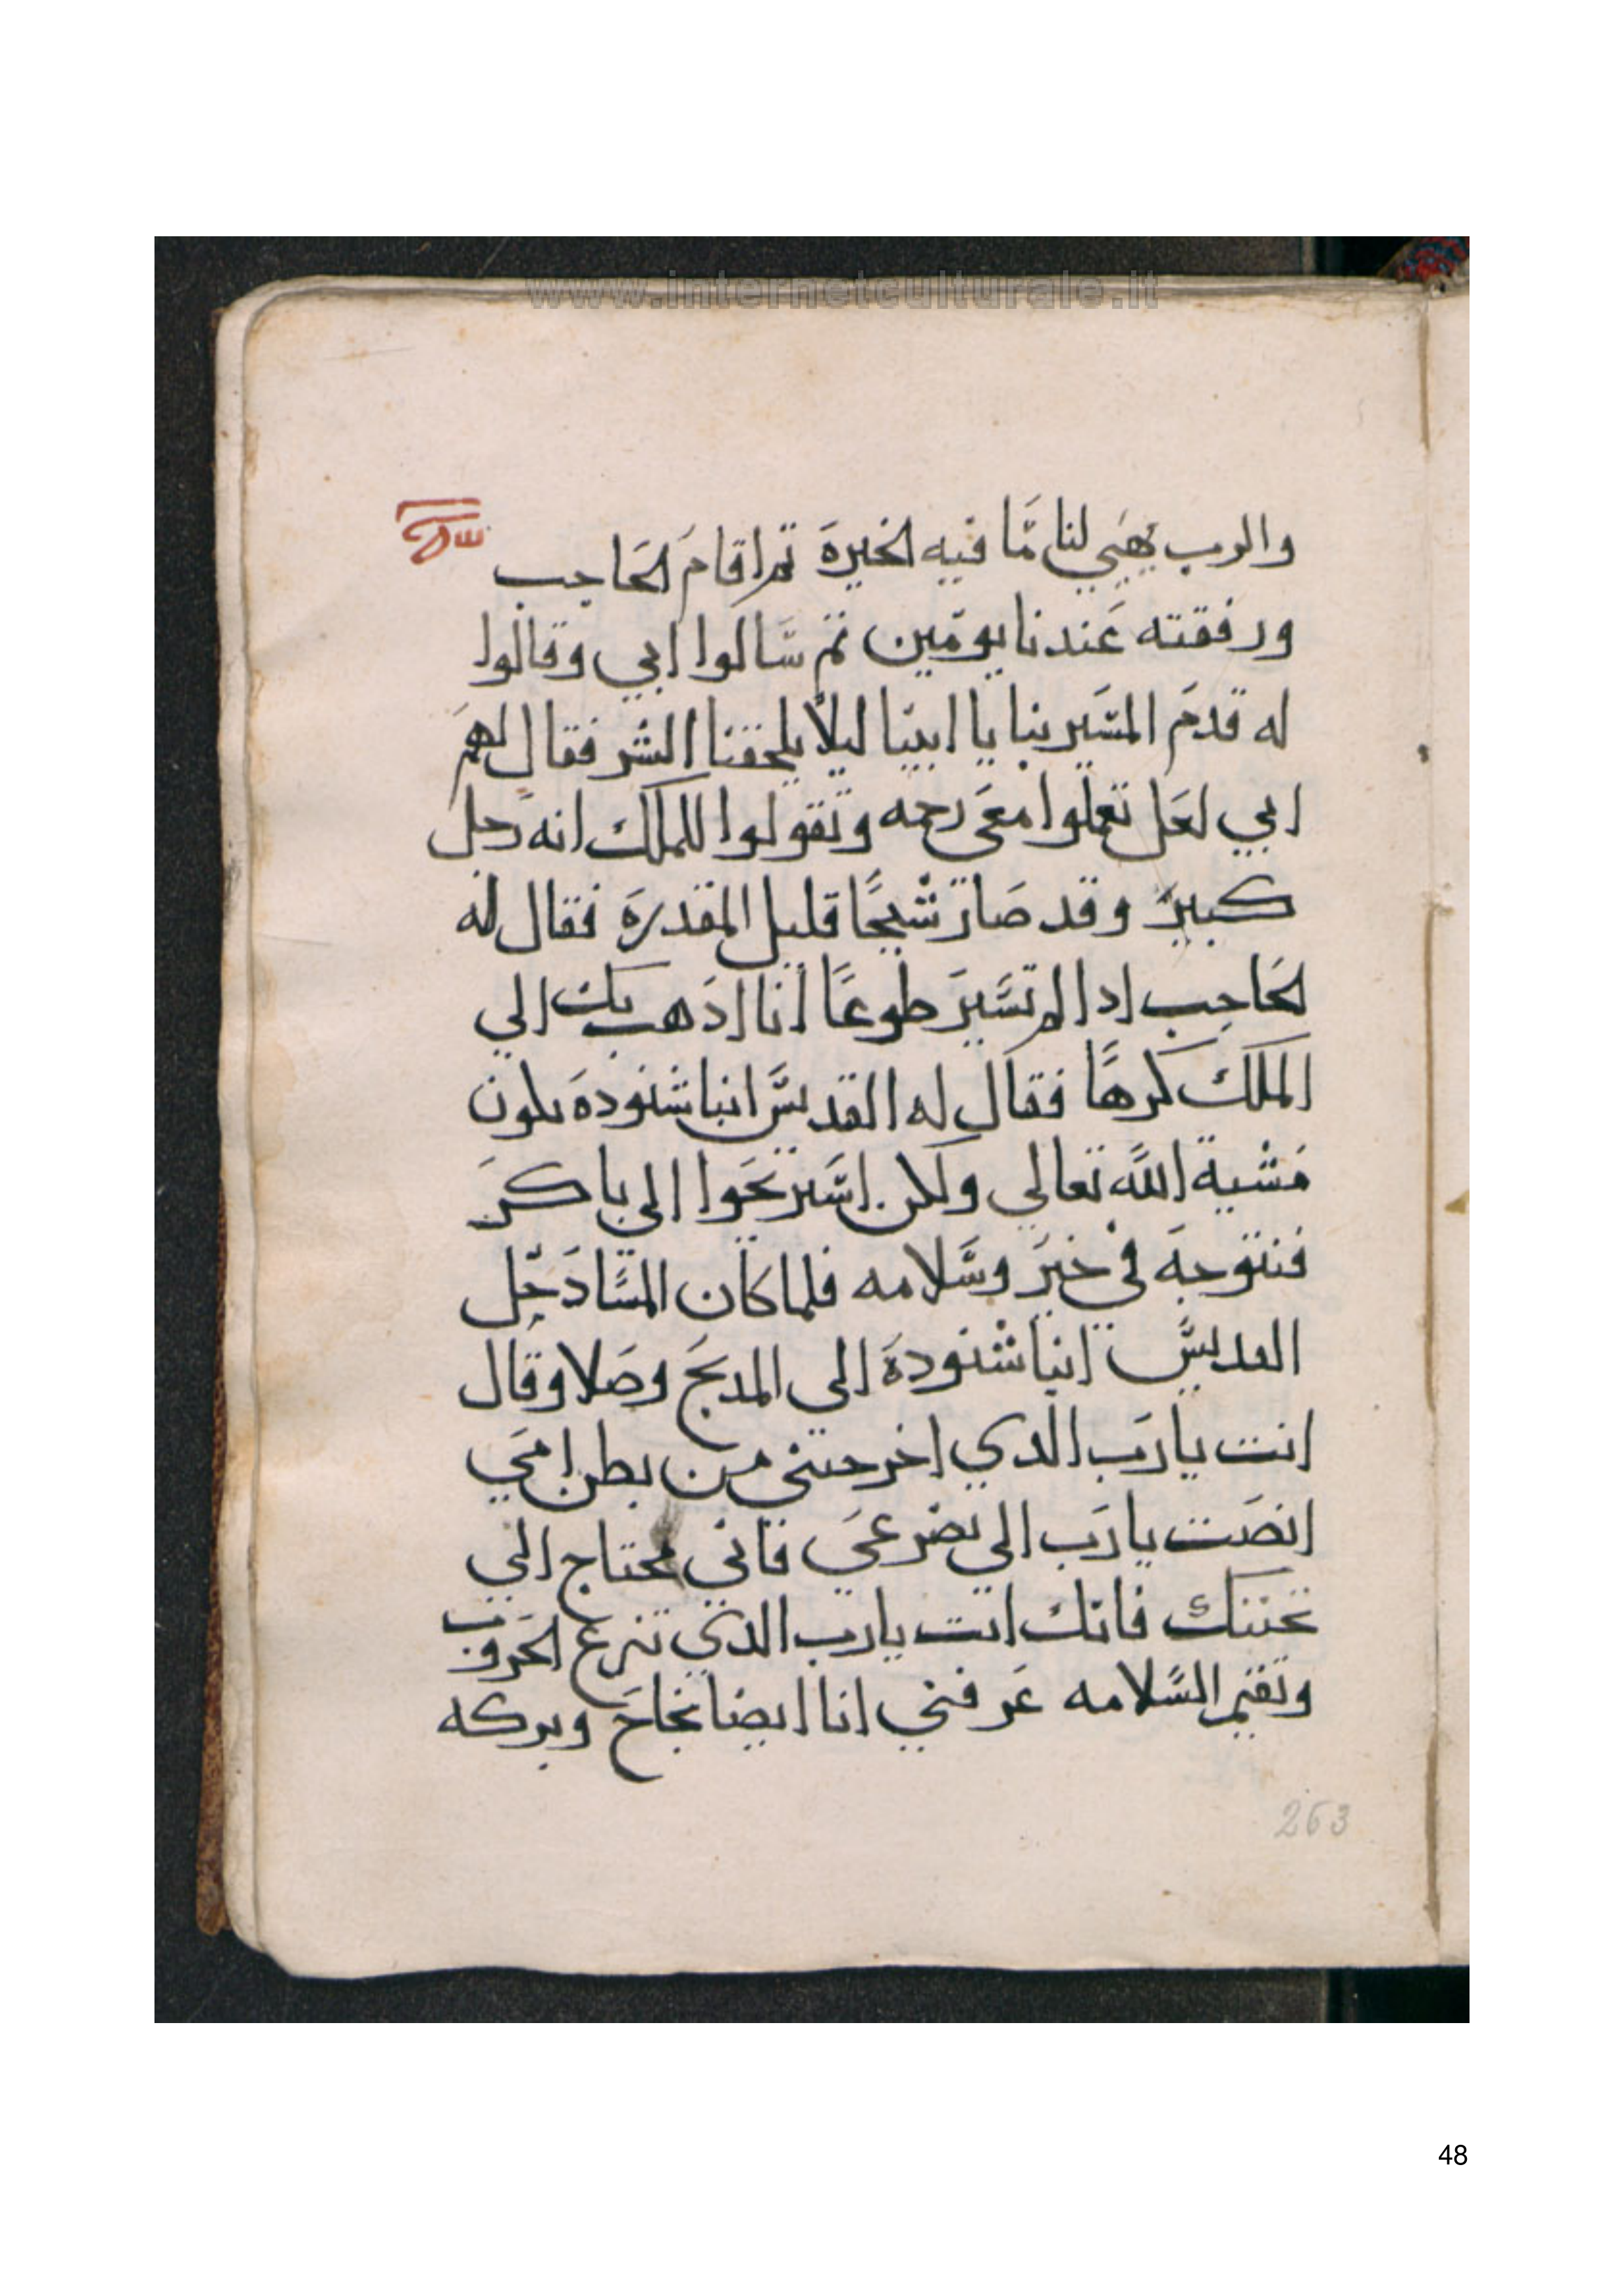 www.internetculturale.it
والرب يهيي لنا ما فيه الخيرة ثم اقام الحاجب
ورفقته عندنا يومين ثم سالوا ابي وقالوا
له قدم المسير بنا يا ابينا ليلا يلحقنا الشر فقال لهم
ابي لعل تعملوا معي رحمه وتقولوا للملك انه رجل
كبير وقد صار شيخا قليل المقدرة فقال له
الحاجب ادا لم تسير طوعا انا ادهب بك الي
الملك كرها فقال له القديس انبا شنوده تكون
مشية الله تعالي ولكن استريحوا الي باكر
فنتوجه في خير وسلامه فلما كان المسا دخل
القديس انبا شنودة الي المدبح وصلا وقال
انت يا رب الدي اخرجتني من بطن امي
انصت يا رب الي تضرعي فاني محتاج الي
تحننك فانك انت يا رب الدي تنزع الحروب
وتقيم السلامه عرفني انا ايضا نجاح وبركه
263
48